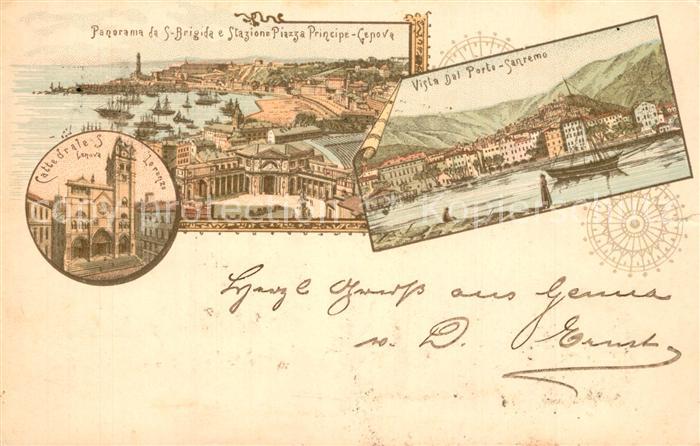 Panorama da S. Brigida e Stazione Piazza Principe - Genova
Vista dal Porto - Sanremo
Cattedrale S. Lorenzo
Genova
Herzl Gruß aus Genua
v. D. Ernst